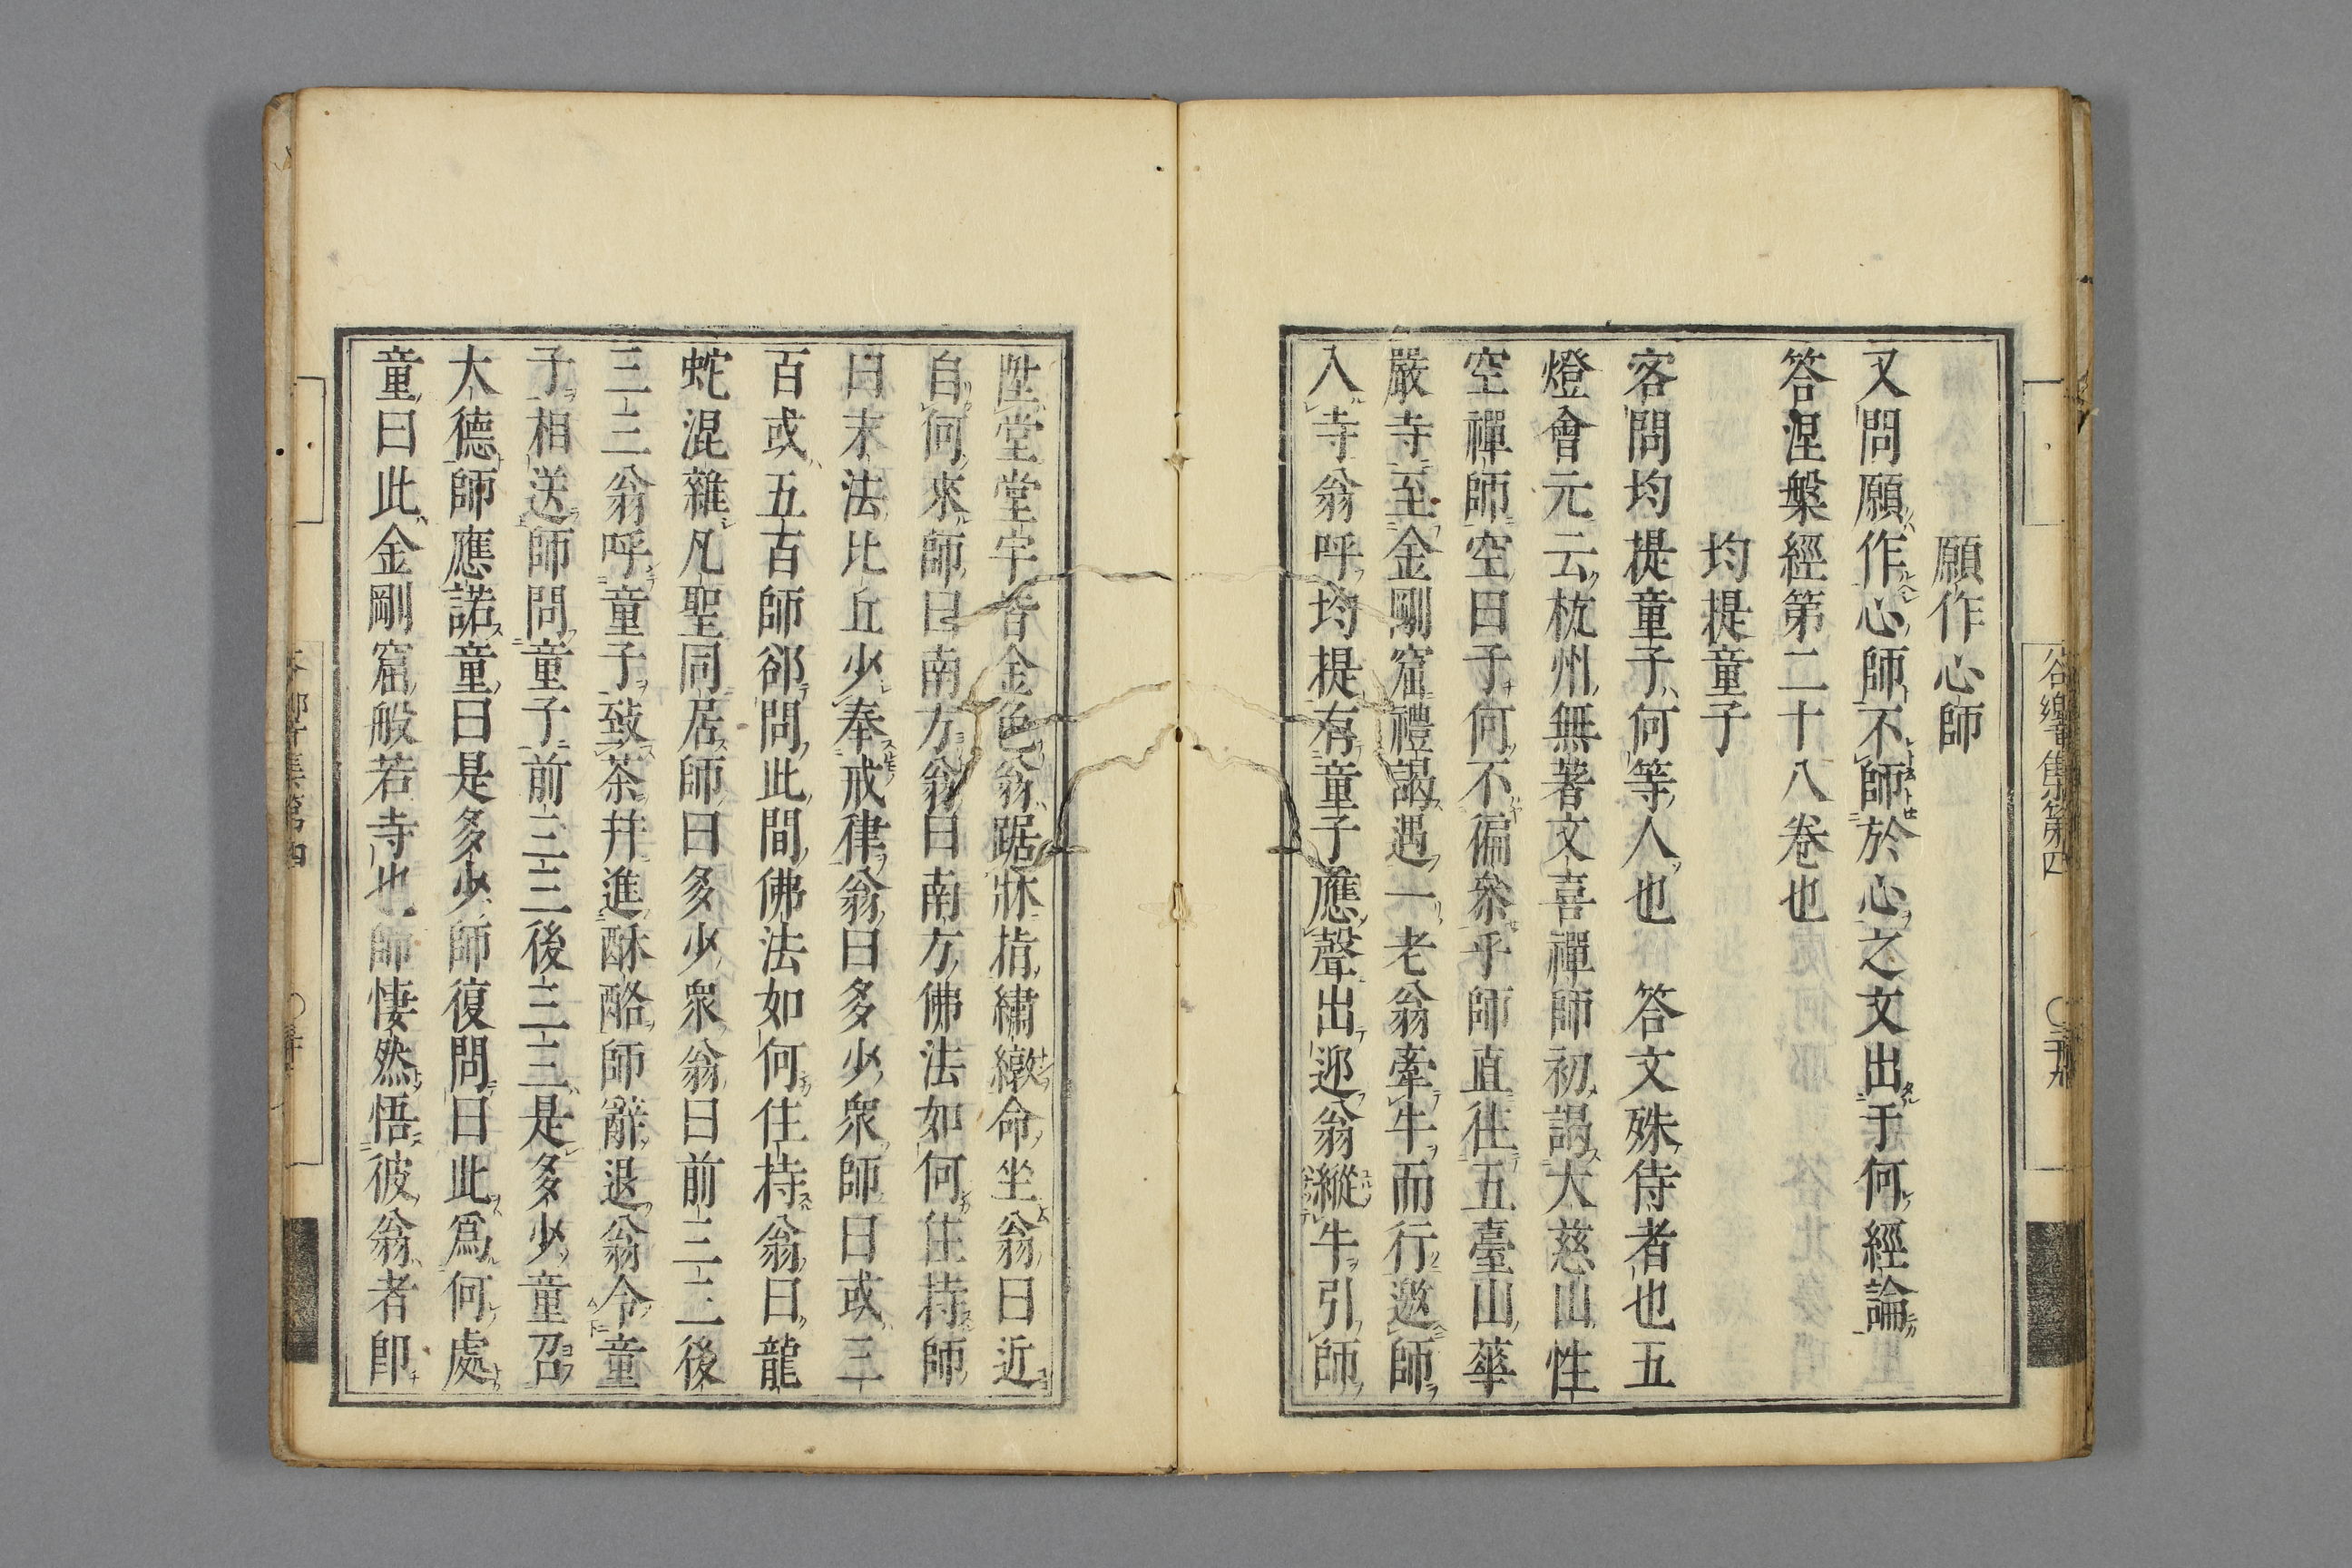 願作心師
又問願作心師不師於心之文出于何經論
答涅槃經第二十八卷也
均提童子
客問均提童子何等人也　答文殊侍者也五
燈會元云杭州無著文喜禪師初謁大慈山性
空禪師空曰子何不徧參乎師直往五臺山華
嚴寺至金剛窟禮謁遇一老翁牽牛而行邀師
入寺翁呼均提有童子應聲出迎翁縱牛引師
陞堂堂宇皆金色翁踞牀指繡墩命坐翁曰近
自何來師曰南方翁曰南方佛法如何住持師
曰末法比丘少奉戒律翁曰多少衆師曰或三
百或五百師卻問此間佛法如何住持翁曰龍
蛇混雜凡聖同居師曰多少衆翁曰前三三後
三三翁呼童子致茶并進酥酪師辭退翁令童
子相送師問童子前三三後三三是多少童召
大德師應諾童曰是多少師復問曰此爲何處
童曰此金剛窟般若寺也師悽然悟彼翁者即